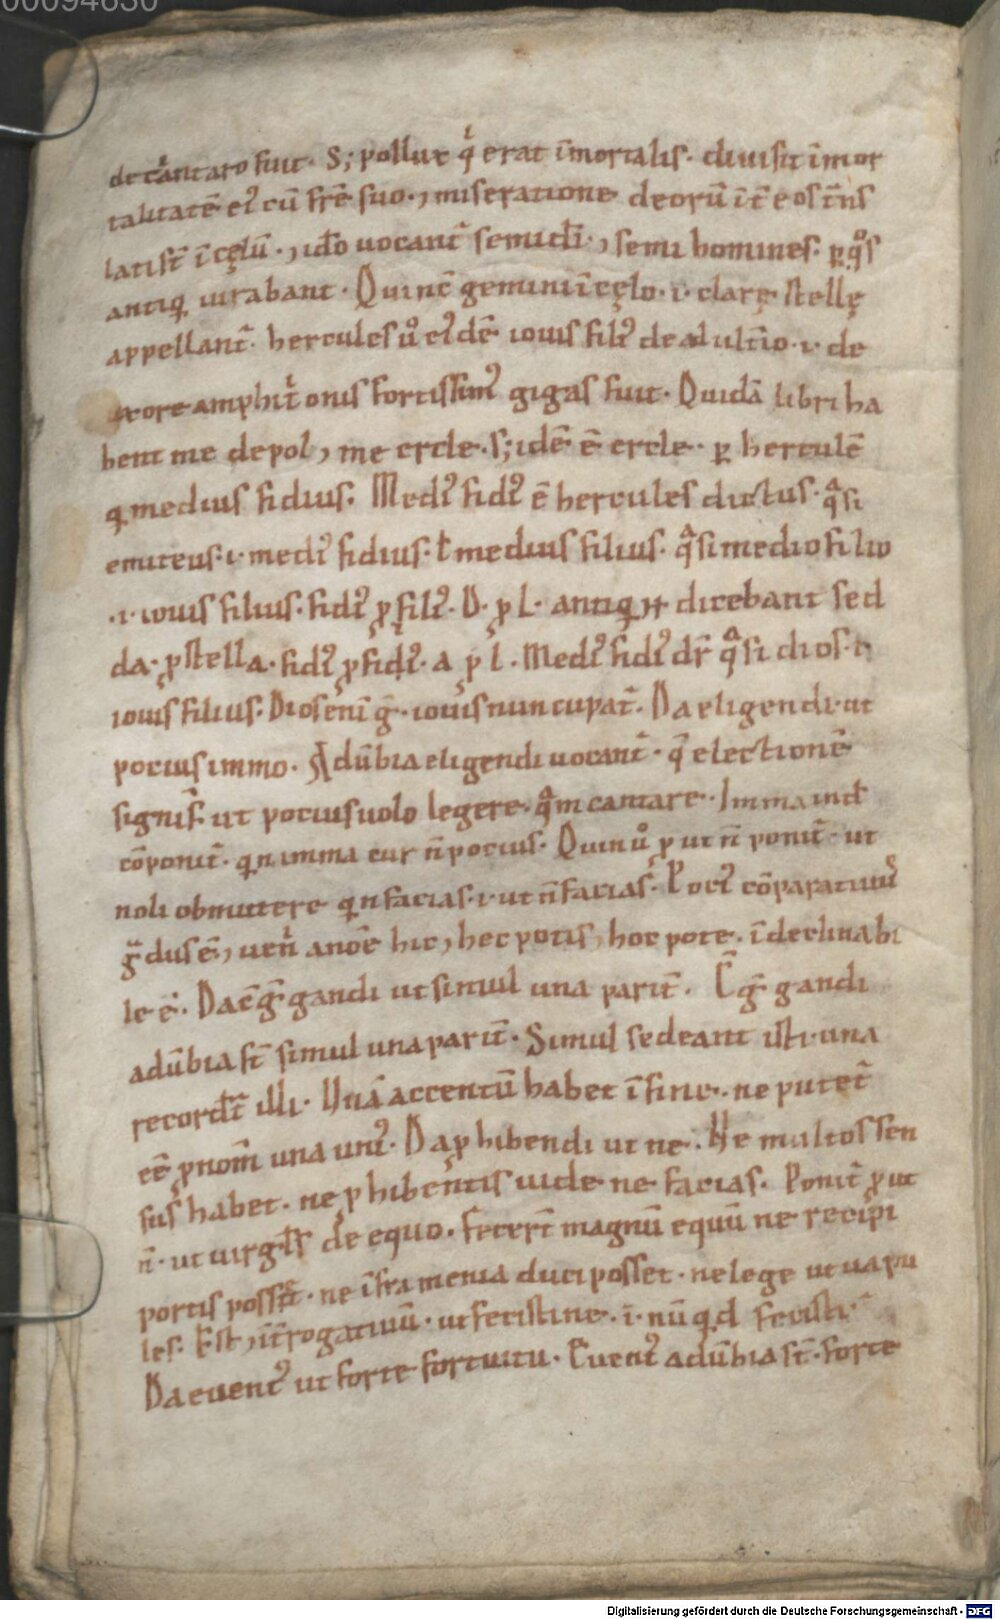 00094830
decantaro fuit. S; pollux q̇ erat ı̄mortalis. diuisit ı̄mor
talitatē eiꝰ cū fr̄e suo. ⁊ miseratione deorū ı̄t̄ eos t̄ns
lati st̄ ı̄ cęlū. ⁊ ido uocant̄ semidı̄. ⁊ semi homines. ꝑ qͦs
antiq; iurabant. Qui nc̄ gemini ı̄ cęlo .i. clarę stellę
appellant̄. hercules uͦ eiꝰdē iouis filiꝰ de adult̄io .i. de
uxore amphit̄onis fortissimꝰ gigas fuit. Quidā libri ha
bent me depol ⁊ me ercle. S; idē ē ercle. ꝑ herculē
q; medius fidius. Mediꝰ fidiꝰ ē hercules dictus. qͣsi
emiteus .i. mediꝰ fidius. ł medius filius. qͣsi medio filio
.i. iouis filius. fidiꝰ ꝓ filiꝰ. D. ꝓ L. antiq; dicebant sed
da. ꝓ stella. fidiꝰ ꝓ fidiꝰ. a ꝓ l. Mediꝰ fidiꝰ dr̄ qͣsi dios .i.
iouis filius. Dios enı̄ ḡ. iouis nuncupat̄. Da eligendi. ut
pocius immo. Adūbia eligendi uocant̄. q̄ electionē
signif̄. ut pocius uolo legere. qͣm cantare. Imma ind̄
cōponit̄. q; n imma cur n̄ pocius. Quin uͦ ꝓ ut n̄ ponit̄. ut
noli obmittere q; n facias .i. ut n̄ facias. Pociꝰ cōparatiuuͥ
gͣdus ē, ⁊ uen̄ a noīe hic ⁊ hec potis ⁊ hoc pote. ı̄declinabi
le ē. Da c̄gͣgandi ut simul una parit̄. C̄gͣgandi
adūbia st̄ simul una parit̄. Simul sedeant isti. una
recordēt̄ illi. Una accentū habet ı̄ fine. ne putet̄
eē ꝓnom̄ una uniꝰ. Da ꝓhibendi ut ne. Ne multos sen
sus habet. ne ꝓhibentis uide ne facias. Ponit̄ ꝓ ut
n̄. ut uirgl̄s de equo. fecer̄t magnū equū ne recipi
portis possͣt. ne ı̄fra menia duci posset. ne lege ut uapu
les. Est ⁊ ı̄t̄rogatiuū. ut fecistine .i. nū q;d fecisti
Da euentꝰ ut forte fortuitu. Euentꝰ adūbia st̄. forte
Digitalisierung gefördert durch die Deutsche Forschungsgemeinschaft - DFG